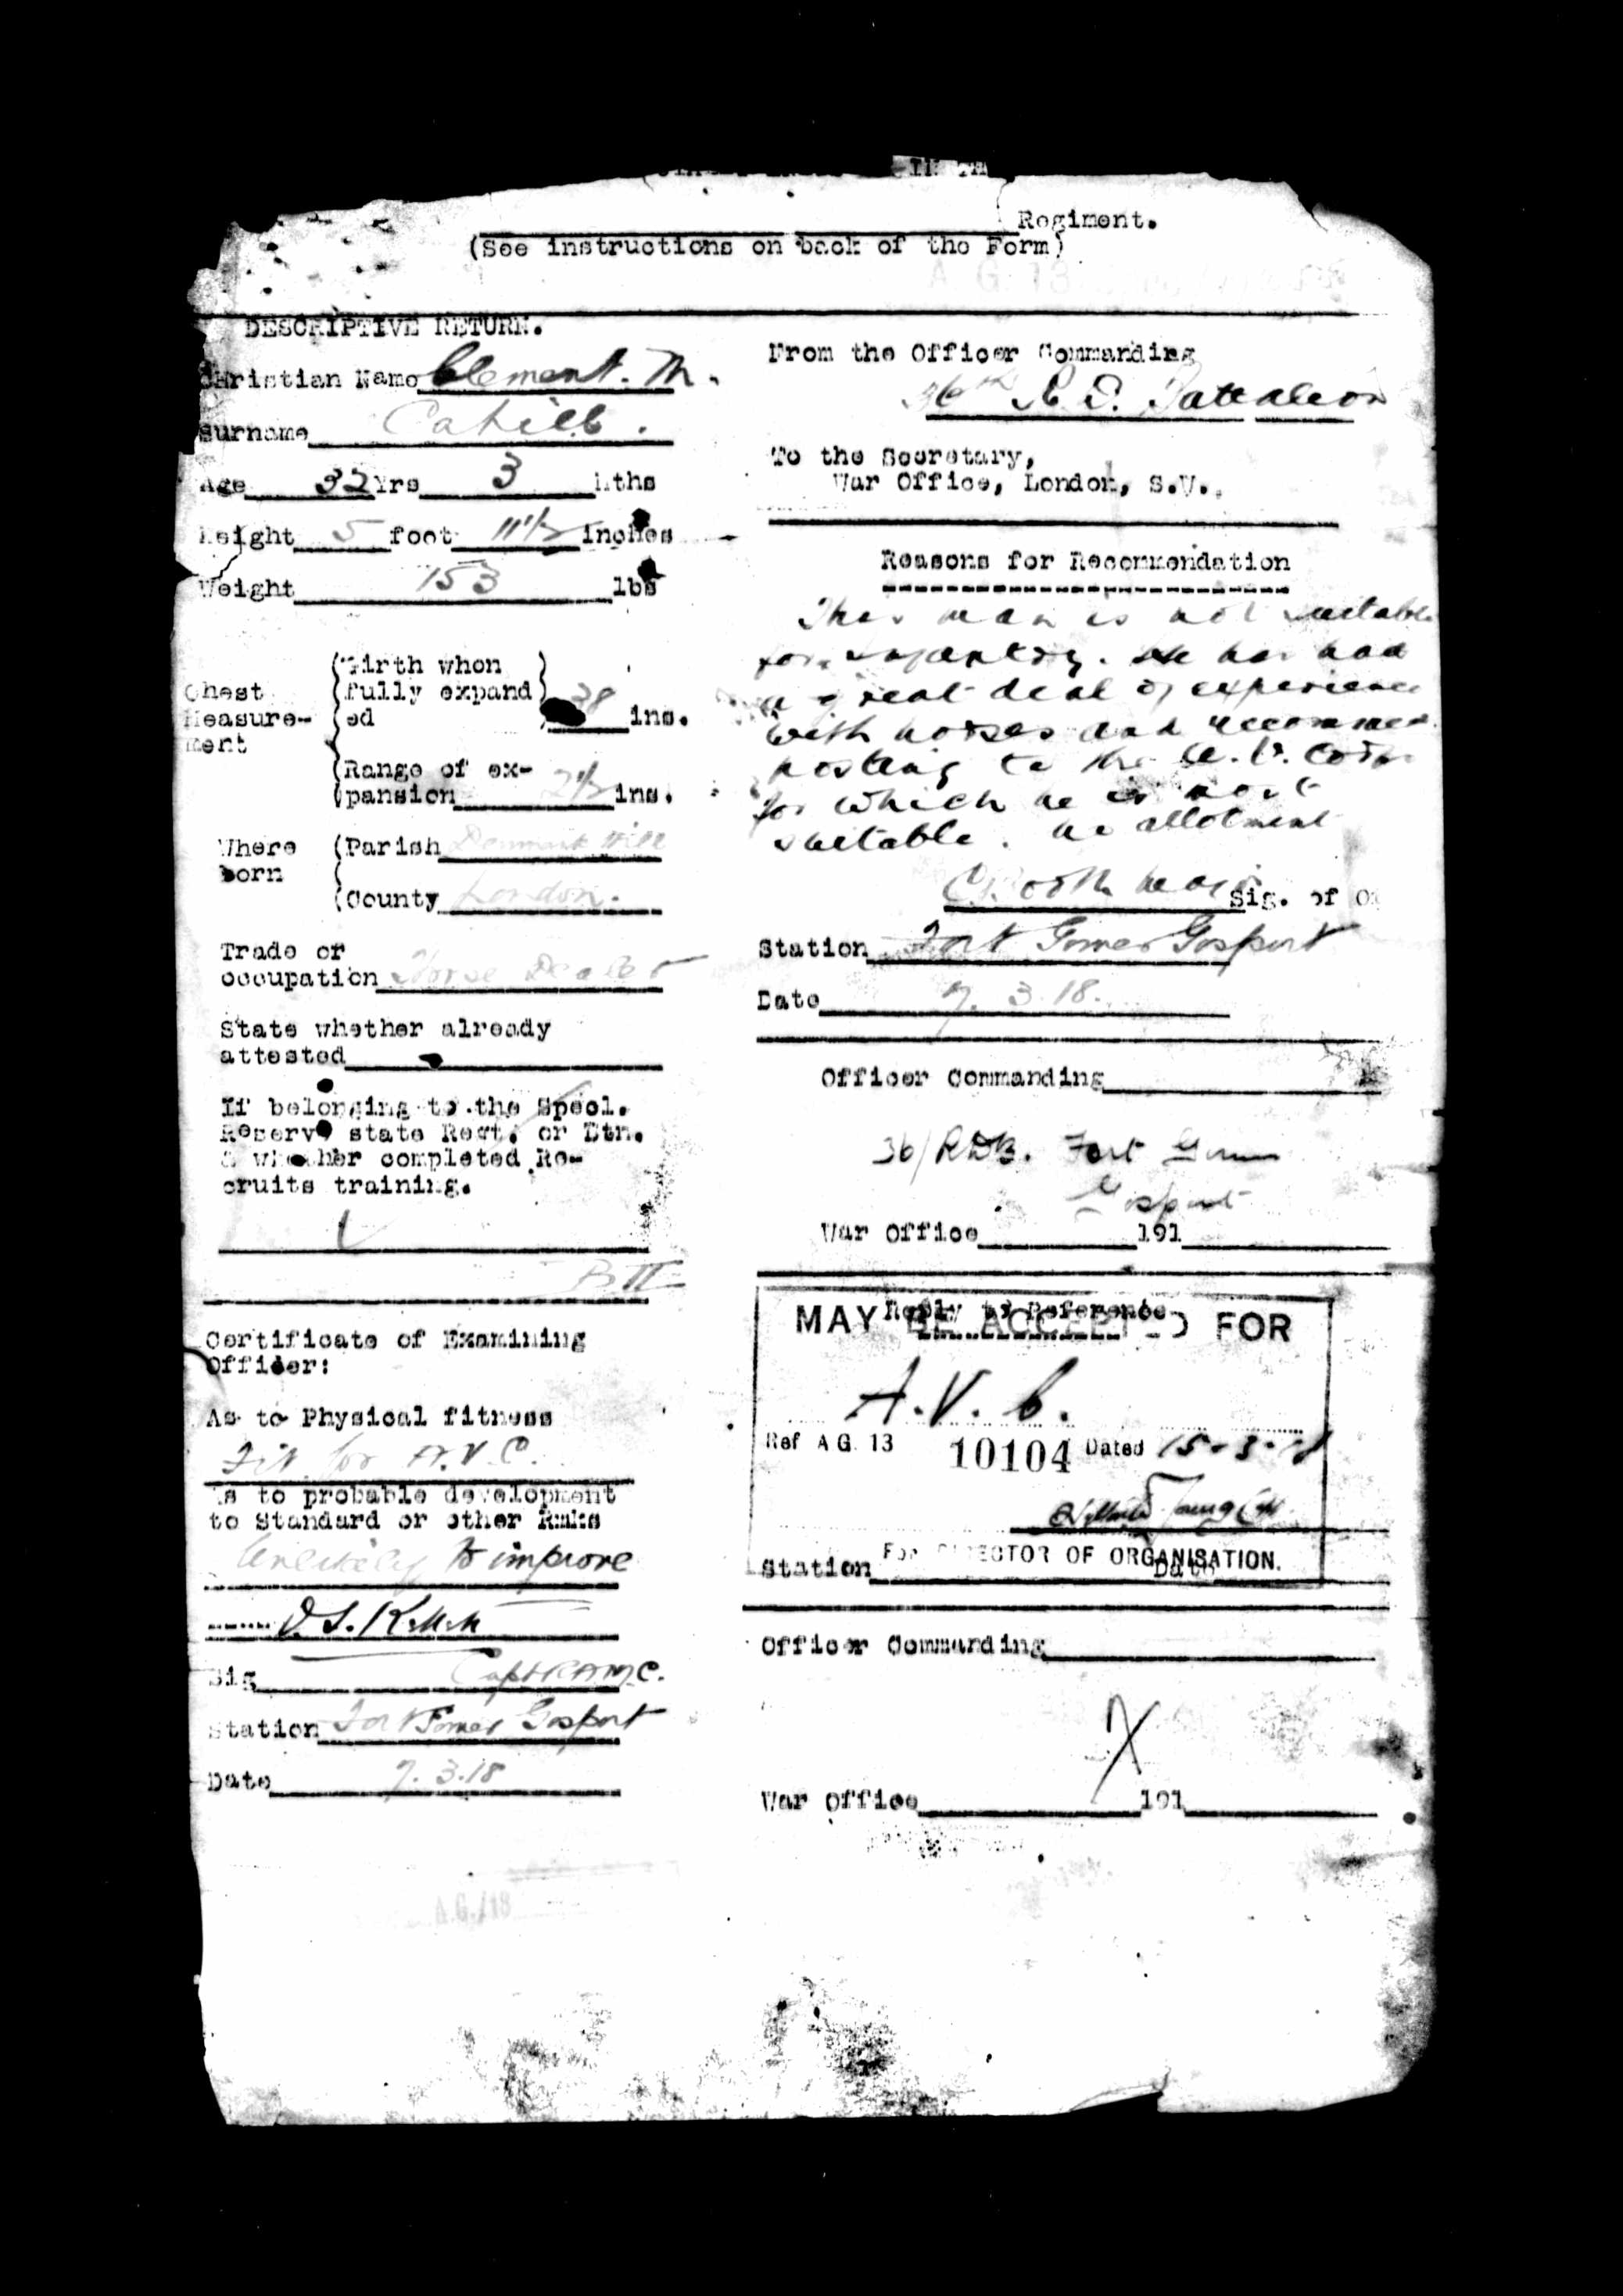 Regiment.
(See instructions on back of the Form)
DESCRIPTIVE RETURN.
Christian Name Clement. M.
Surname Cahill.
Age 32 Yrs 3 Mths
Height 5 foot 11½ inches
Weight 153 lbs
Chest Measure-ment
(Girth when
fully expand
ed 38 ins.
(Range of ex-
pansion 2½ ins.
Where born
(Parish Denmark Hill
(County London.
Trade or
occupation Horse Dealer
State whether already
attested
If belonging to the Specl.
Reserve state Regt. or Btn.
& whether completed Re-
cruits training.
B II
Certificate of Examining
Officer:
As to Physical fitness
Fit for A.V.C.
As to probable development
to Standard or other Rmks
Unlikely to improve
Sig Capt RAMC.
Station Fort Gomer Gosport
Date 7.3.18
From the Officer Commanding
36th R.D. Battalion
To the Secretary,
War Office, London, S.W.
Reasons for Recommendation
This man is not suitable
for infantry. He has had
a great deal of experience
with horses and recommen
posting to the A.V. Corps
for which he is most
suitable. no allotment
Sig. of O
Station Fort Gomer Gosport
Date 7.3.18.
Officer Commanding
36/RDB. Fort Gomer
Gosport
War Office 191
Reply to Reference
MAY BE ACCEPTED FOR
A.V.C.
Ref A G. 13 10104 Dated 15-3-18
FOR DIRECTOR OF ORGANISATION.
Station Date
Officer Commanding
War Office 191
A.G./13